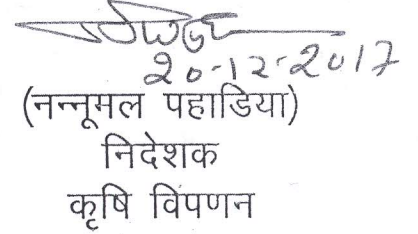 20-12-2017
(नन्नूमल पहाडिया)
निदेशक
कृषि विपणन